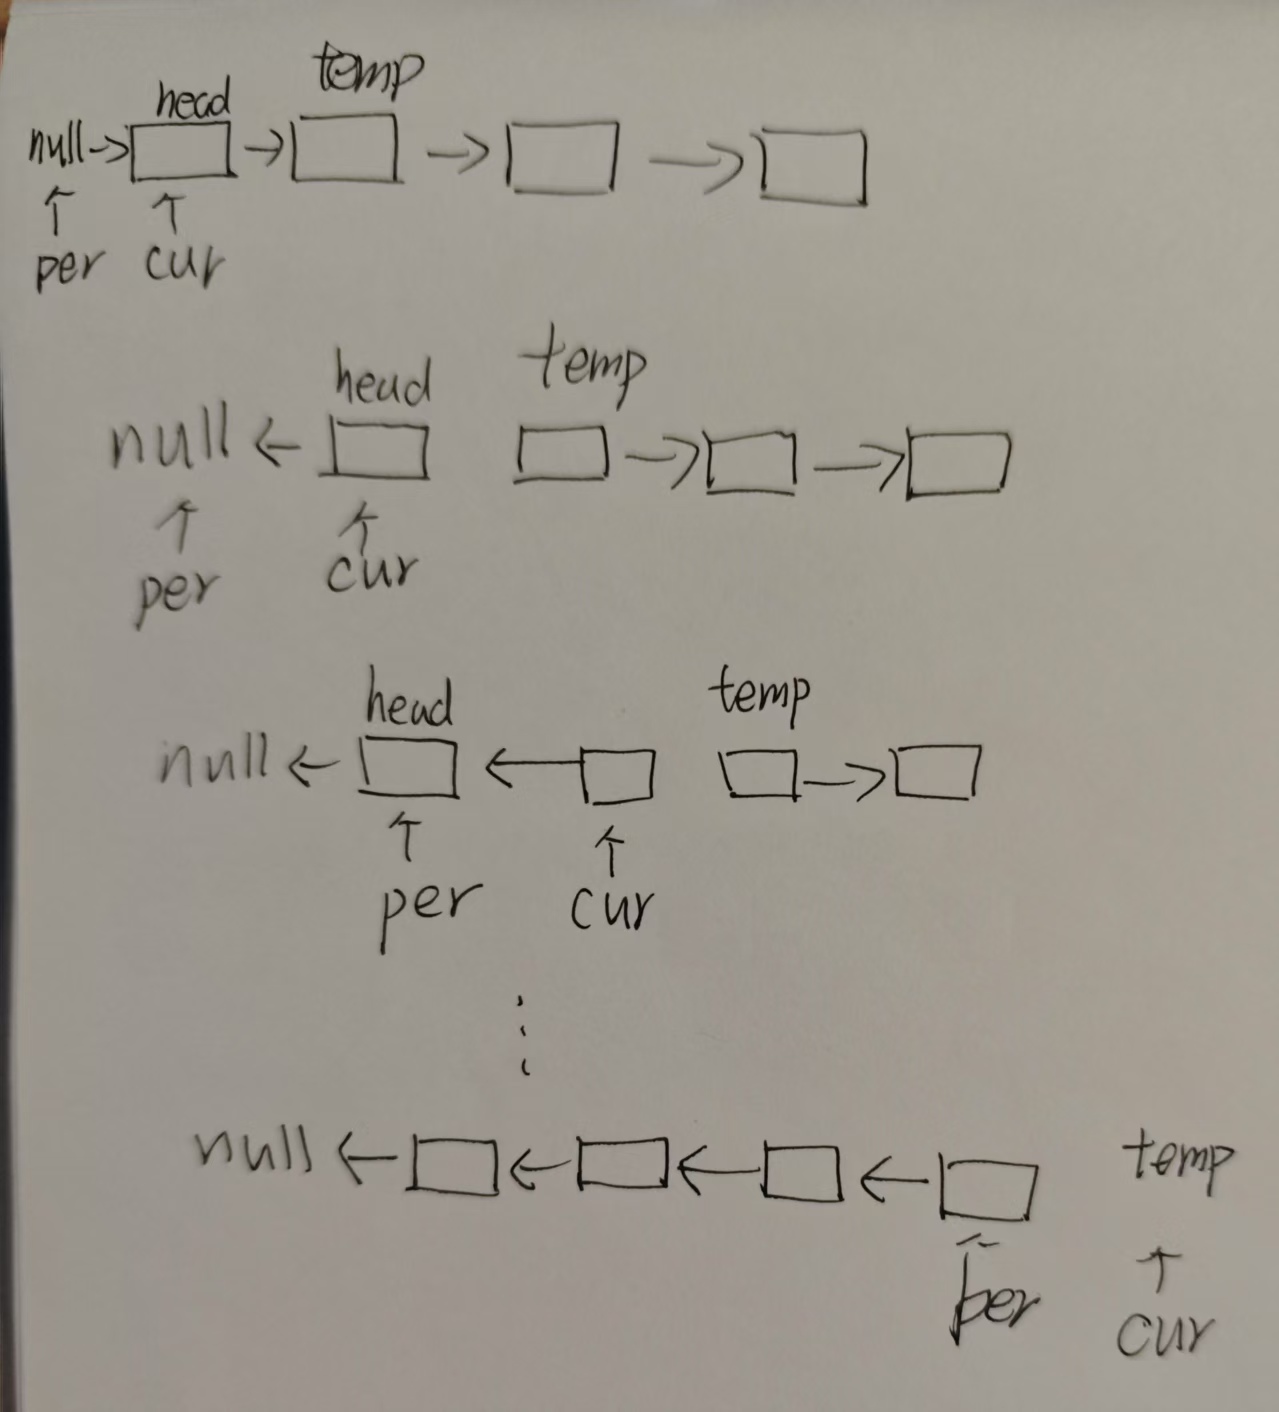 temp
head
null
per cur
head temp
null
per cur
head temp
null
per cur
null temp
per cur